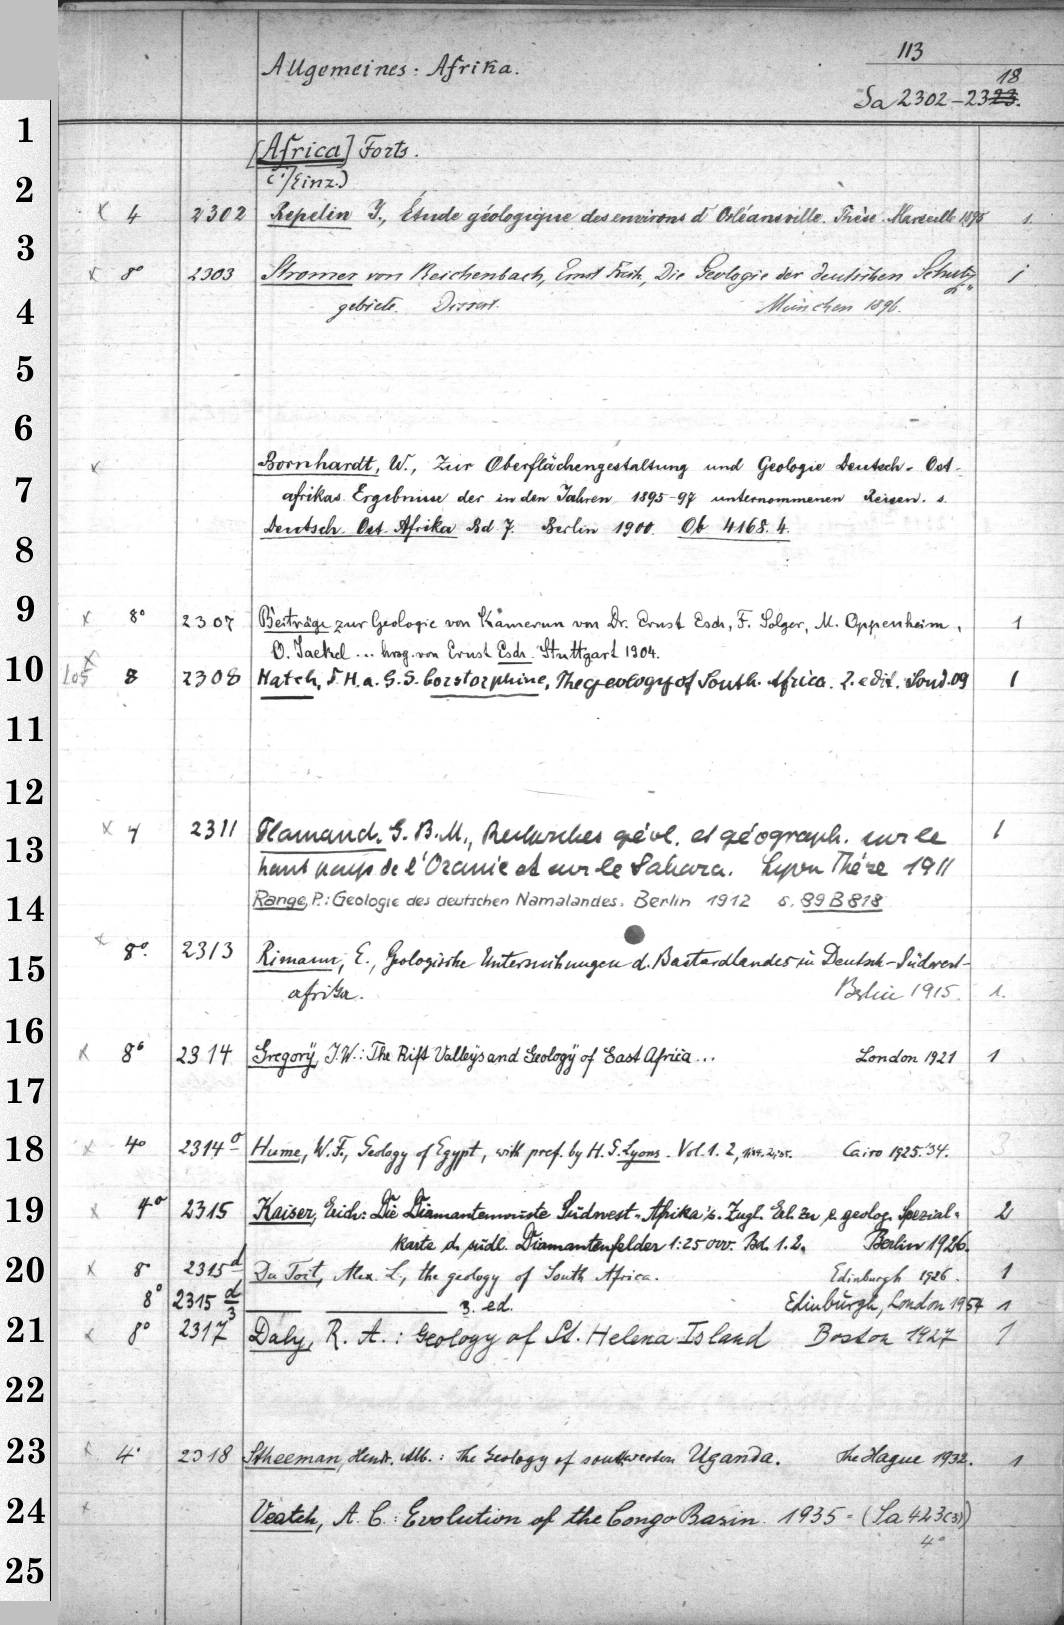 Allgemeines: Afrika.
113
18
Sa 2302-2323.
1
[Africa] Forts.
(Einz.)
2
x 4 2302 Repelin J., Étude géologique des environs d'Orléansville. Thèse. Marseille 1895 1
3
x 8° 2303 Stromer von Reichenbach, Ernst Frdr., Die Geologie der deutschen Schutz- 1
4
gebiete. Dissert. München 1896.
5
6
x Bornhardt, W., Zur Oberflächengestaltung und Geologie Deutsch-Ost-
7
afrikas. Ergebnisse der in den Jahren 1895-97 unternommenen Reisen. s.
Deutsch-Ost-Afrika Bd 7. Berlin 1900. Ob 4168.4.
8
9
x 8° 2307 Beiträge zur Geologie von Kamerun von Dr. Ernst Esch, F. Solger, M. Oppenheim, 1
O. Jaekel ... hrsg. von Ernst Esch. Stuttgart 1904.
10
x 8 2308 Hatch, F.H. a. G.S. Corstorphine, The geology of South Africa. 2. edit. Lond. 09 1
11
12
x 4 2311 Flamand, G.B.M., Recherches géol. et géograph. sur le 1
13
haut pays de l'Oranie et sur le Sahara. Lyon Thèse 1911
14
Range, P.: Geologie des deutschen Namalandes. Berlin 1912 s. 89 B 818
x 8°. 2313 Rimann, E., Geologische Untersuchungen d. Bastardlandes in Deutsch-Südwest-
15
afrika. Berlin 1915. 1.
16
x 8° 2314 Gregory, J.W.: The Rift Valleys and Geology of East Africa ... London 1921 1
17
18
x 4° 2314 a Hume, W.F., Geology of Egypt, with pref. by H.G. Lyons. Vol. 1. 2, Cairo 1925.'34. 3
19
x 4° 2315 Kaiser, Erich: Die Diamantenwüste Südwest-Afrika's. Zugl. Erl. zu e. geolog. Spezial- 2
karte d. südl. Diamantenfelder 1:25000. Bd. 1.2. Berlin 1926.
20
x 8° 2315 d Du Toit, Alex. L., the geology of South Africa. Edinburgh 1926. 1
8° 2315 d/3 3. ed. Edinburgh, London 1954 1
21
x 8° 2317 Daly, R. A.: Geology of St. Helena Island Boston 1927 1
22
23
x 4° 2318 Stheeman, Hendr. Alb.: The Geology of southwestern Uganda. The Hague 1932. 1
24
x Veatch, A. C.: Evolution of the Congo Basin. 1935 = (Sa 423(3))
4°
25